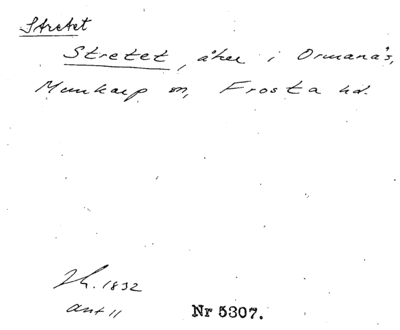 Stretet
Stretet, åker i Ormanäs,
Munkarp sn, Frosta hd.
Zh. 1832
akt 11
Nr 5307.